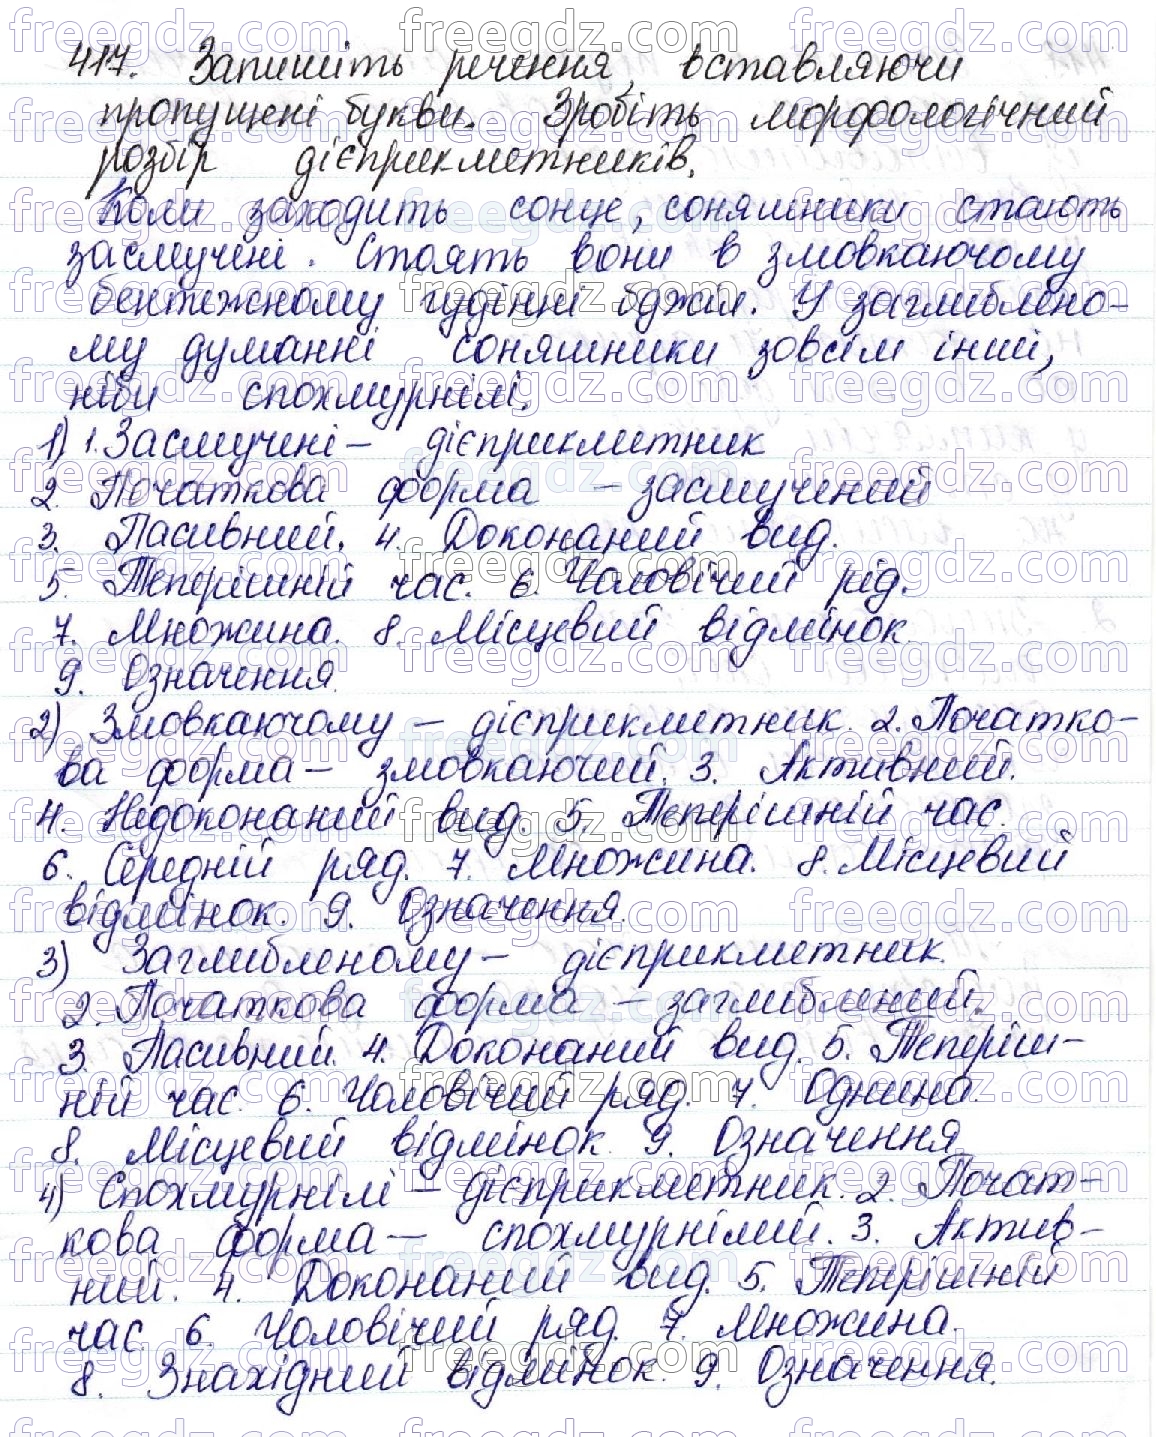 417. Запишіть речення, вставляючи
пропущені букви. Зробіть морфологічний
розбір дієприкметників.
Коли заходить сонце, соняшники стають
засмучені. Стоять вони в змовкаючому
бентежному гудінні бджіл. У заглиблено-
му думанні соняшники зовсім інші,
ніби спохмурнілі.
1) 1. Засмучені – дієприкметник
2. Початкова форма – засмучений
3. Пасивний. 4. Доконаний вид.
5. Теперішній час. 6. Чоловічий рід.
7. Множина. 8. Місцевий відмінок
9. Означення.
2) Змовкаючому – дієприкметник. 2. Початко-
ва форма – змовкаючий. 3. Активний.
4. Недоконаний вид. 5. Теперішній час.
6. Середній ряд. 7. Множина. 8. Місцевий
відмінок. 9. Означення.
3) Заглибленому – дієприкметник.
2. Початкова форма – заглиблений.
3. Пасивний. 4. Доконаний вид. 5. Теперіш-
ній час. 6. Чоловічий ряд. 7. Однина.
8. Місцевий відмінок. 9. Означення
4) Спохмурнілі – дієприкметник. 2. Почат-
кова форма – спохмурнілий. 3. Актив-
ний. 4. Доконаний вид. 5. Теперішній
час. 6. Чоловічий ряд. 7. Множина.
8. Знахідний відмінок. 9. Означення.